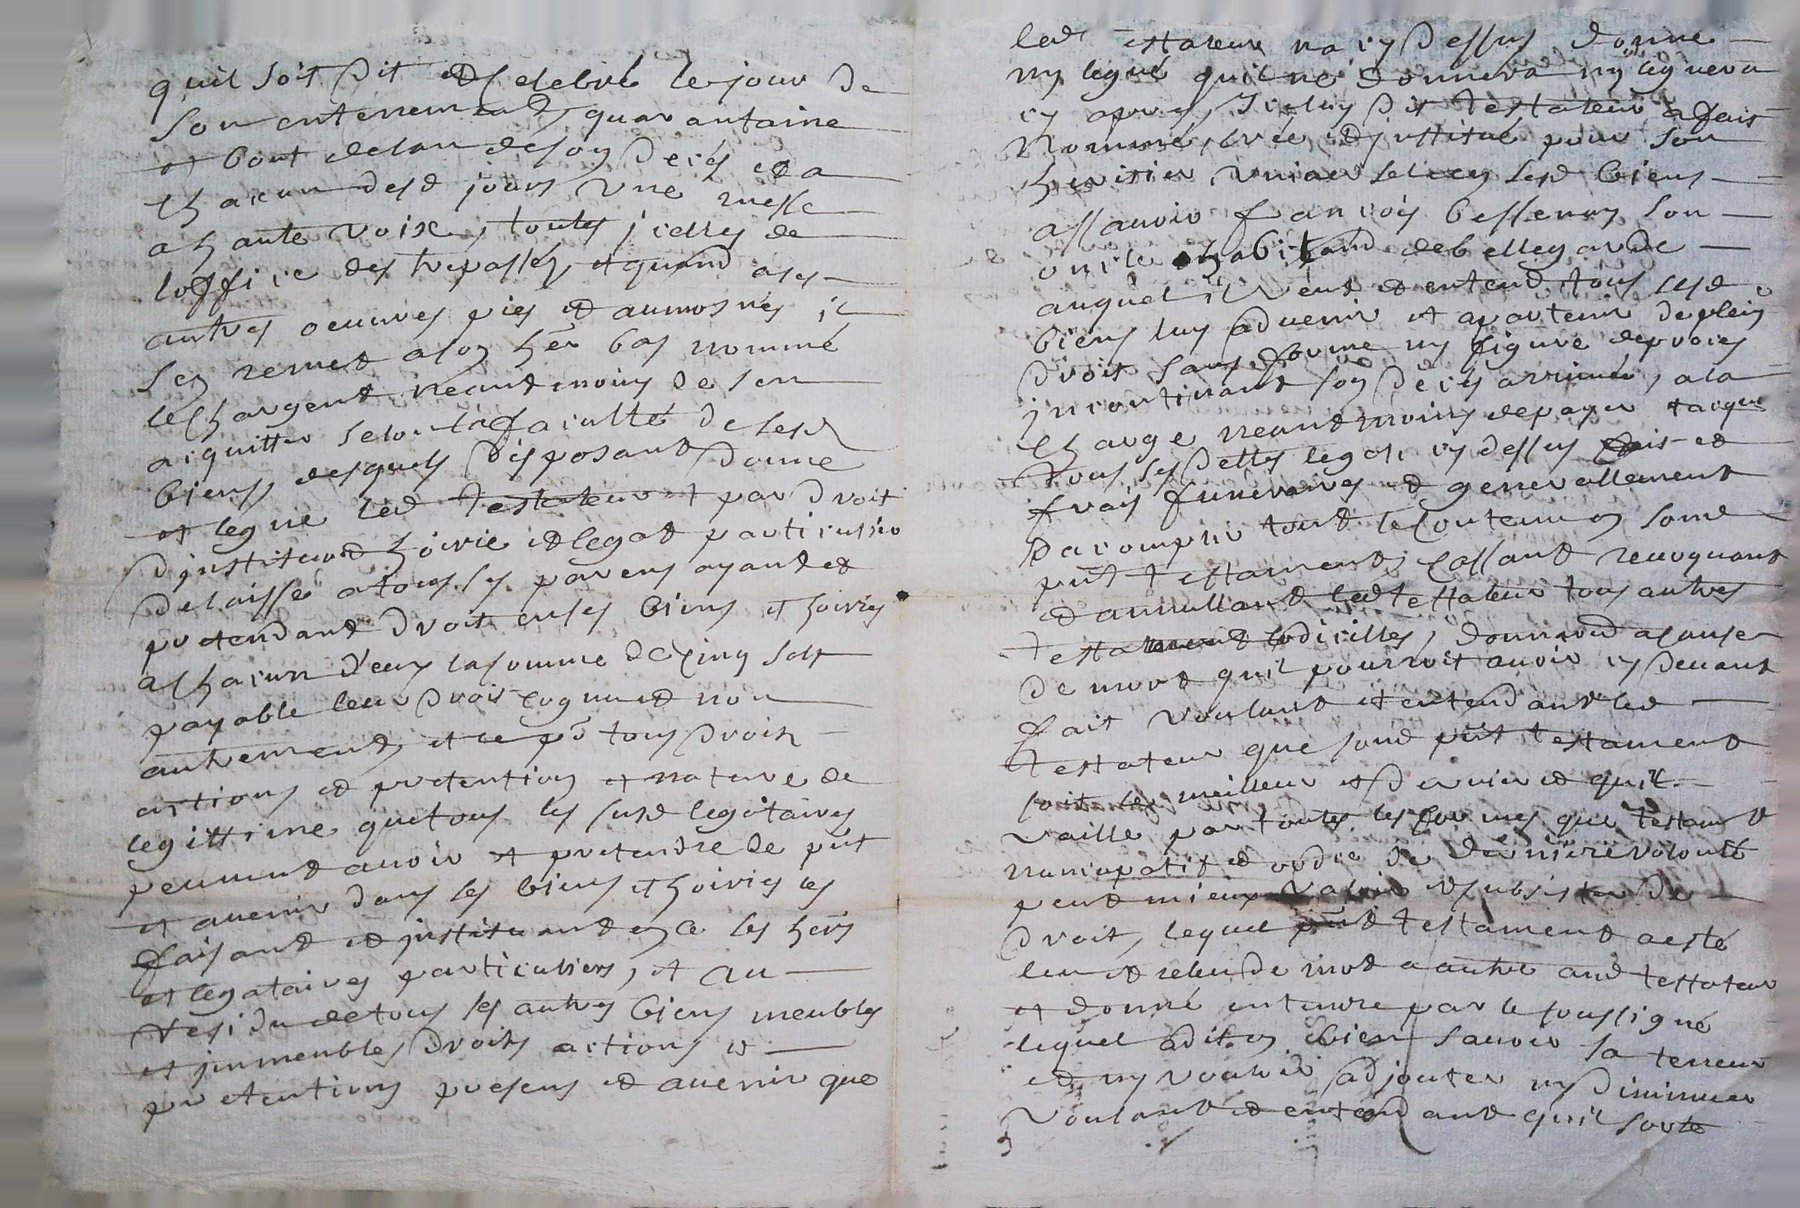 quil soit dit et celebré le jour de
son enterrement, quarantaine
et bout delan deson deces et a
chacun desd jours une messe
a haute voix, toutes icelles de
loffice des trepassés, et quand a ses
autres oeuvres pies et aumosnes il
sen remet a son her bas nommé
le chargent neantmoins de sen
aiquitter selon la faculté de sesd
biens, desquels disposant donne
et legue led testateur et par droit
dinstitution hoirie et legat particulier
delaisse a tous ses parens ayant et
pretendant droit en ses biens et hoiries
a chacun deux la somme de cinq sols
payable leur droit cognu et non
autrement, et ce po tous droits
actions et pretention et nature de
legittime que tous les susd legataires
peuvent avoir et pretendre de pnt
et avenir dans les biens et hoiries les
faisant et instituant en ce ses hers
et legataires particuliers, et au
residu de tous ses autres biens meubles
et immeubles droits actions et
pretentions presens et avenir que
led testateur na cy dessus donné
ny legué quil ne donnera ny leguera
cy apres, Icelluy dit testateur a fait
nommé, créé et institué pour son
heritier universel en sesd biens
assavoir francois bessenay son
oncle habitant de bellegarde
auquel il veut et entend tous sesd
biens luy advenir et apartenir de plein
droit sans forme ny figure de proces
incontinant son deces arrivé, a la
charge neantmoins de payer
tous ses dettes legats cy dessus fais et
frais funeraires et generallement
dacomplir tout le contenu en sond
pnt testament, cassant revoquant
et annullant led testateur tous autres
testament codicilles, donnaon a cause
de mort quil pourroit avoir cy devant
fait voulant et entendant led
testateur que sond pnt testament
soit le meilleur et dernier et quil
vaille par toutes les formes que testamt
nuncupatif et ordre de derniere volonté
peut mieux valoir et subsister de
droit, lequel pnt testament a esté
leu et releu de mot a autre aud testateur
et donné entendre par le soussigné
lequel a dit en bien savoir sa teneur
et ny vouloir adjouter ny diminuer
voulant et entendant quil sorte